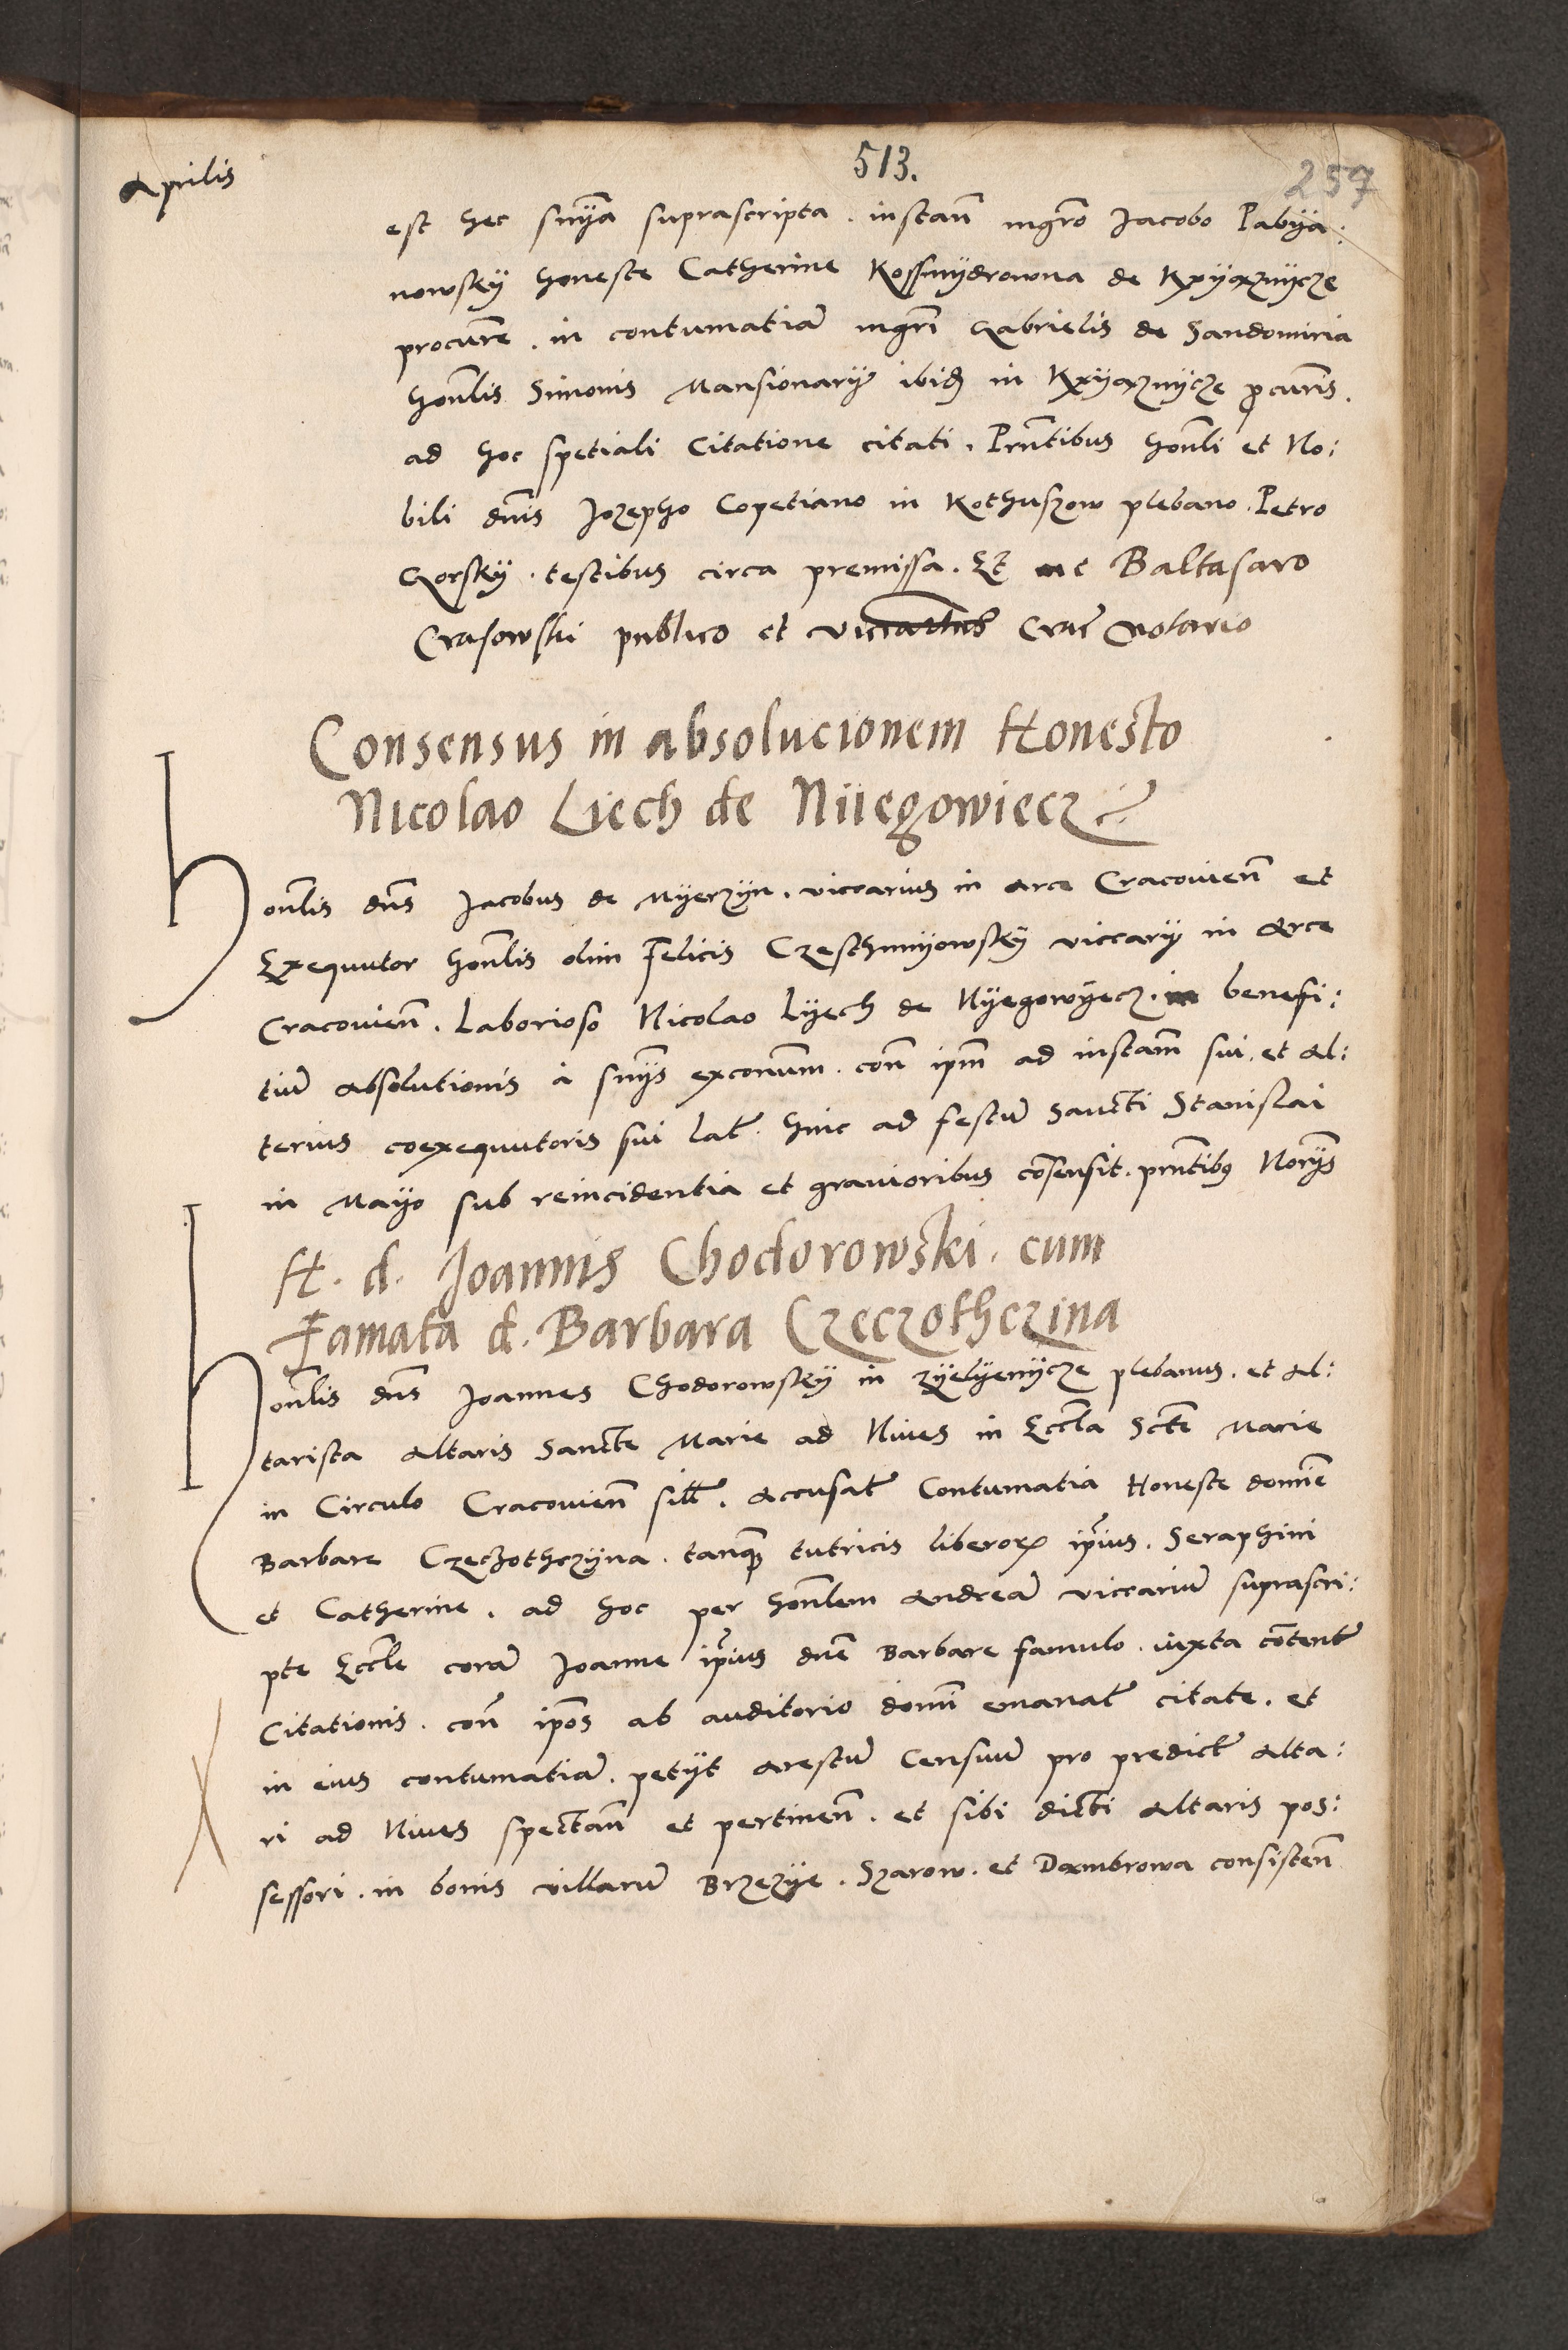 Aprilis
513.
257
est hec snÿa suprascripta. instan̄ mgr̄o Jacobo Pabÿa:
nowskÿ honeste Catherine Kossmÿdrowna de Kxÿązÿnÿcze
procur̄e. in contumatiā mgr̄i Gabrielis de Sandomiria
hon̄lis Simonis Mansionarÿ ibid̄ in Kxÿązÿnÿcze p̄cur̄is.
ad hoc spetiali Citatione citati. Prn̄tibus hon̄li et No:
bili dn̄is Jozepho Copetiano in Kothuszow plebano. Petro
Gorskÿ. testibus circa premissa. Et me Baltasaro
Crasowski publico et Crac̄ Notario
Consensus in absolucionem Honesto
Nicolao Liech de Niiegowiecz
Hon̄lis dn̄s Jacobus de Mÿerzÿn. viccarius in arce Cracovien̄ et
Exequutor hon̄lis olim Felicis Czeschmÿowskÿ viccarÿ in Arce
Cracovien̄. Laborioso Nicolao Lÿech de Nÿegowÿecz. in benefi:
tiū absolutionis à sn̄ÿs exconum̄. con̄ ipm̄ ad instam̄ sui. et al:
terius coexequutoris sui lat̄. hinc ad festū Sancti Stanislai
in Mayo sub reincidentia et gravioribus cōsensit. prn̄tibꝰ Norÿs
H. d. Joannis Chodorowski. cum
Famata d. Barbara Czeczothczina
Hon̄lis dn̄s Joannes Chodorowskÿ in Zÿelÿenÿcze plebanus. et al:
tarista altaris Sancte Marie ad Nives in Eccl̄a Sct̄e Marie
in Circulo Cracovien̄ sitt̄. Accusat̄ Contumatia Honeste domīe
Barbare Czeczothczÿna. tanqꝫ tutricis liberoꝝ ip̄ius. Seraphini
et Catherine. ad hoc per hon̄lem Andreā viccariū suprascri:
pte Eccl̄e corā Joanne ip̄ius dn̄e Barbare famulo. iuxta cōtent̄
Citationis. con̄ ip̄os ab auditorio domī emanat̄ citate. et
in eius contumatiā. petÿt Arestū Censuū pro predict̄ alta:
ri ad Nives spectan̄ et pertinen̄. et sibi dicti altaris pos:
sessori. in bonis villarū Brzezÿe. Szarow. et Dambrowa consisten̄